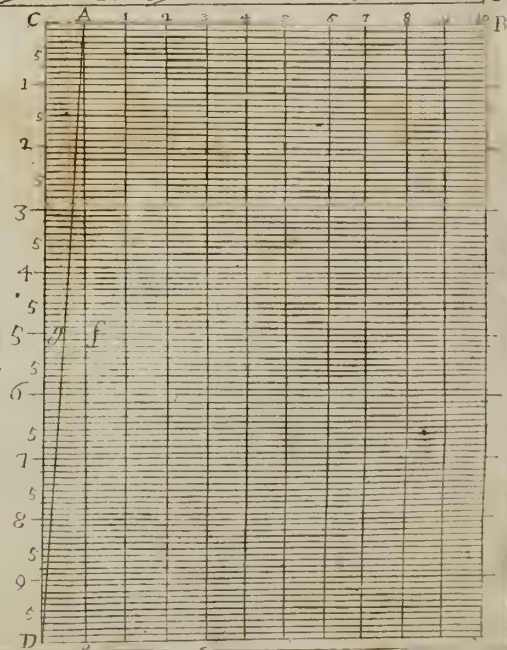 C A 1 2 3 4 5 6 7 8 9 10 B
5
1
5
2
5
3
5
4
5
5 g f
5
6
5
7
5
8
5
9
5
D